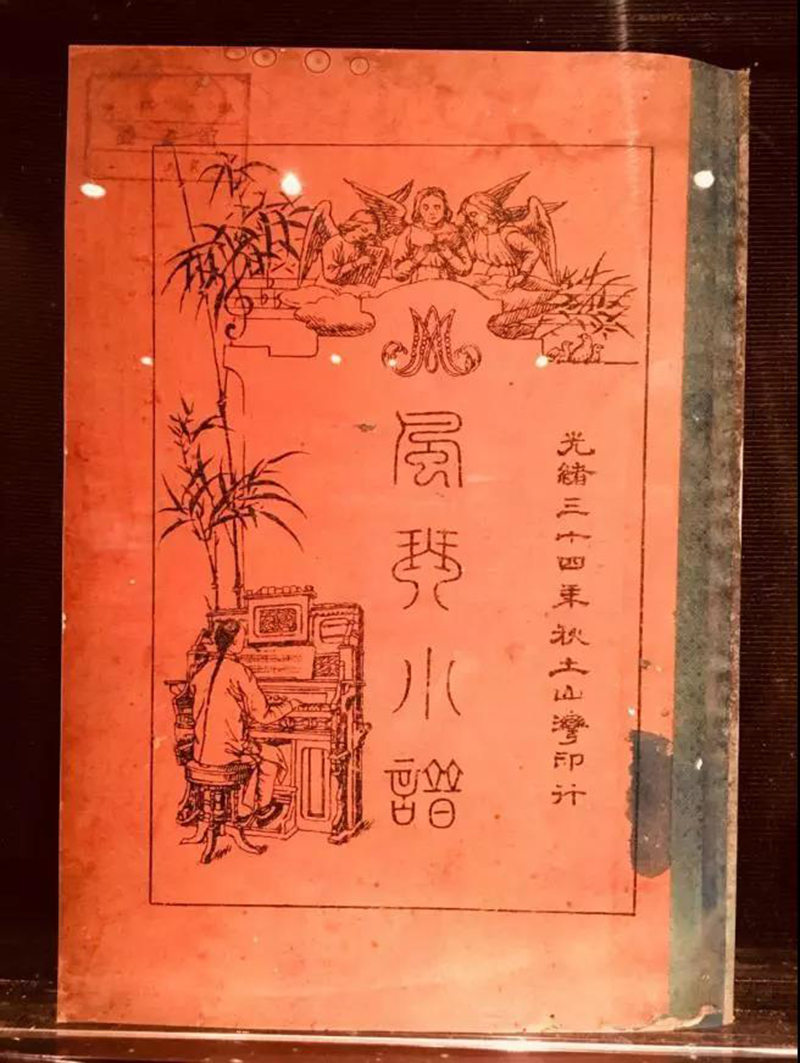 光緒三十四年秋土山灣印行
風琴小譜